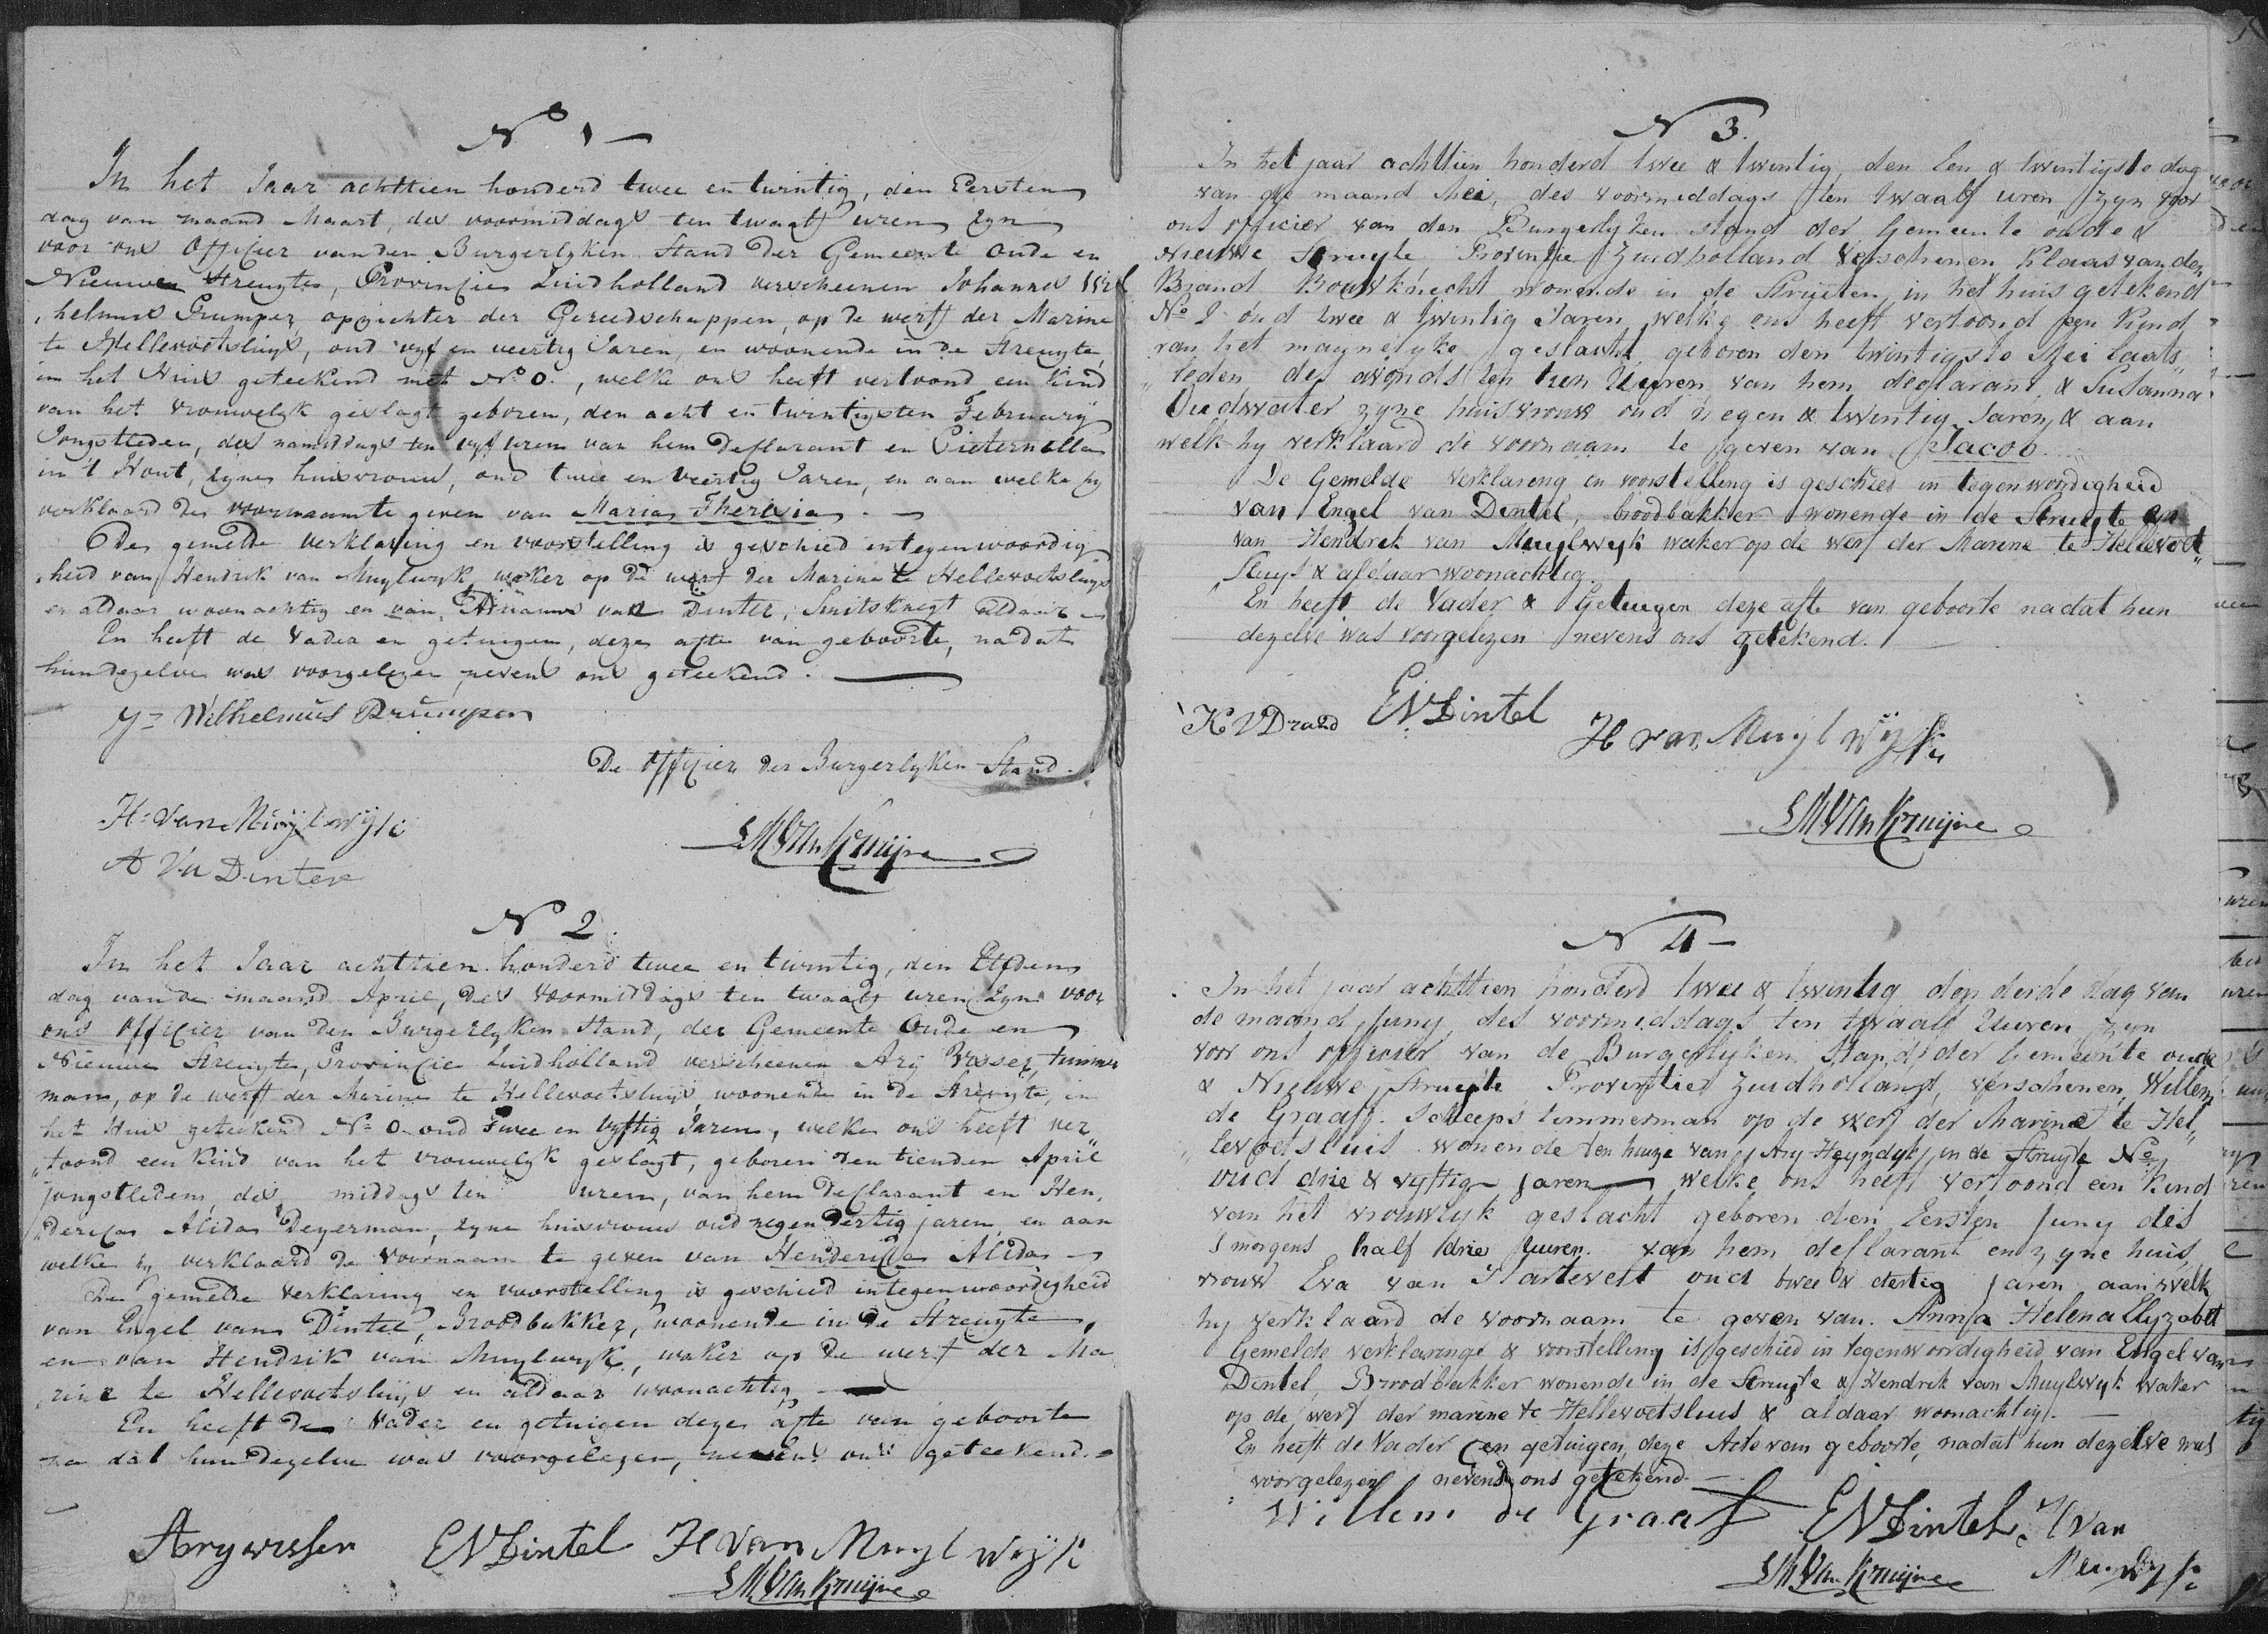 No 1 —
In het Jaar achttien honderd twee en twintig, den Eersten
dag van maand Maart, des voormiddags ten twaalf uren Zyn
voor ons Officier van den Burgerlyken Stand der Gemeente Oude en
Nieuwen Streuyte, Provincie Zuidholland verscheenen Johannes Wil
helmus Prumper, opzichter der Gereedschappen, op de werff der Marine
te Hellevoetsluys, oud vyf en veertig Jaren, en woonende in de Streuyte,
in het Huis geteekend met No 0., welke ons heeft vertoond een Kind
van het vrouwelyk geslagt geboren, den acht en twintigsten February
Jongstleden, des namiddags ten vyf uren van hem Declarant en Pieternella
in 't Hout, zyne huisvrouw, oud twee en veertig Jaren, en aan welke hy
verklaard de voornaam te geven van Maria Theresia. —
De gemelde verklaring en voorstelling is geschied in tegenwoordig
heid van Hendrik van Muylwyk waker op de werf der Marine te Hellevoetsluys
en aldaar woonachtig en van Adrianus van Dinter, Smitsknegt aldaar —
En heeft de Vader en getuigen, deze acte van geboorte, nadat
hun dezelve was voorgelezen nevens ons geteekend. —
J= Wilhelmus Prumper
De Officier der Burgerlyken Stand.
H: van Muylwyk
A Vn Dinter
LM Van Kruijne
N 2.
In het Jaar achttien honderd twee en twintig, den Elfden
dag van de maand April, des Voormiddags ten twaalf uren Zyn voor
ons Officier van den Burgerlyken Stand, der Gemeente Oude en
Nieuwe Streuyte, Provincie Zuidholland verscheenen Ary Visser, timmer
man, op de werff der Marine te Hellevoetsluys, woonende in de Streuyte, in
het Huis geteekend No 0 oud Twee en vyftig Jaren, welke ons heeft ver
„toond een Kind van het vrouwelyk geslagt, geboren den tienden April
jongstleden, des middags ten uren, van hem Declarant en Hen,
„derica Alida Deyerman, zyne huisvrouw oud negen dertig jaren en aan
welke hy verklaard de voornaam te geven van Henderica Alida —
De gemelde verklaring en voorstelling is geschied in tegenwoordigheid
van Engel van Dintel, Broodbakker, woonende in de Streuyte
en van Hendrik van Muylwyk, waker op de werf der Ma
rine te Hellevoetsluys en aldaar woonachtig —
En heeft de Vader en getuigen deze acte van geboorte
na dat hun dezelve was voorgelezen, nevens ons geteekend. =
Ary visser EVDintel H van Muylwyk
LM Van Kruijne
N 3.
In het jaar achttien honderd twee & twintig, den Een & twintigste dag
van de maand Mei, des voormiddags ten twaalf uren, zyn voor
ons officier van den Burgerlyken stand der Gemeente oude &
Nieuwe Struyte Provintje Zuidholland Verschenen Klaas van den
Brand Bouwknecht wonende in de Struyten, in het huis getekend
No 2 oud twee & twintig Jaren welke ons heeft vertoond een Kind
van het mannelyke geslacht geboren den twintigste Mei laats„
„leden des avonds ten tien Uuren, van hem declarant & Susanna
Oudwater zyne huisvrouw oud negen & twintig Jaren & aan
welk hy verklaard de voornaam te geven van Jacob.
De Gemelde Verklareng en voorstelling is geschied in tegenwordigheid
van Engel van Dintel, broodbakker wonende in de Struyte en
van Hendrek van Muylwyk waker op de werf der Marene te Hellevoet„
„Sluys & aldaar woonachtig.
En heeft de Vader & Getuigen deze acte van geboorte nadat hen
dezelve was voorgelezen nevens ons getekend.
K VDrand EVDintel
H van Muylwyk
LM Van Kruijne
N 4 —
In het jaar achttien honderd twee & twintig den derde dag van
de maand Juny, des voormiddags ten twaalf Uuren zyn
voor ons officier van de Burgerlyken Stand, der Gemeente oude
& Nieuwe Struyte Provintie Zuidholland, verschenen, Willem
de Graaff. Scheeps temmerman op de werf der Marine te Hel„
„levoetsluis wonende ten huize van Ary Heyndyk in de Struyte No
oud drie & vyftig jaren — welke ons heeft vertoond een kind
van het vrouwlyk geslacht geboren den Eersten Juny des
s morgens half drie Uuren. van hem declarant en zyne huis,
vrouw Eva van Hartevelt oud twee & dertig Jaren aan welk
hy verklaard de voornaam te geven van. Anna Helena Elyzabet
Gemelde verklaringe & voorstelling is geschied in tegenwoordigheid van Engel van
Dintel, Broodbakker wonende in de Struyte & Hendrek van Muylwyk waker
op de werf der marine te Hellevoetsluis & aldaar woonachtig. —
En heeft de Vader en getuigen deze Acte van geboorte, nadat hun dezelve was
voorgelezen nevens ons getekend. —
Willem de Graaf EVDintel H van
LM Van Kruijne Muylwyk